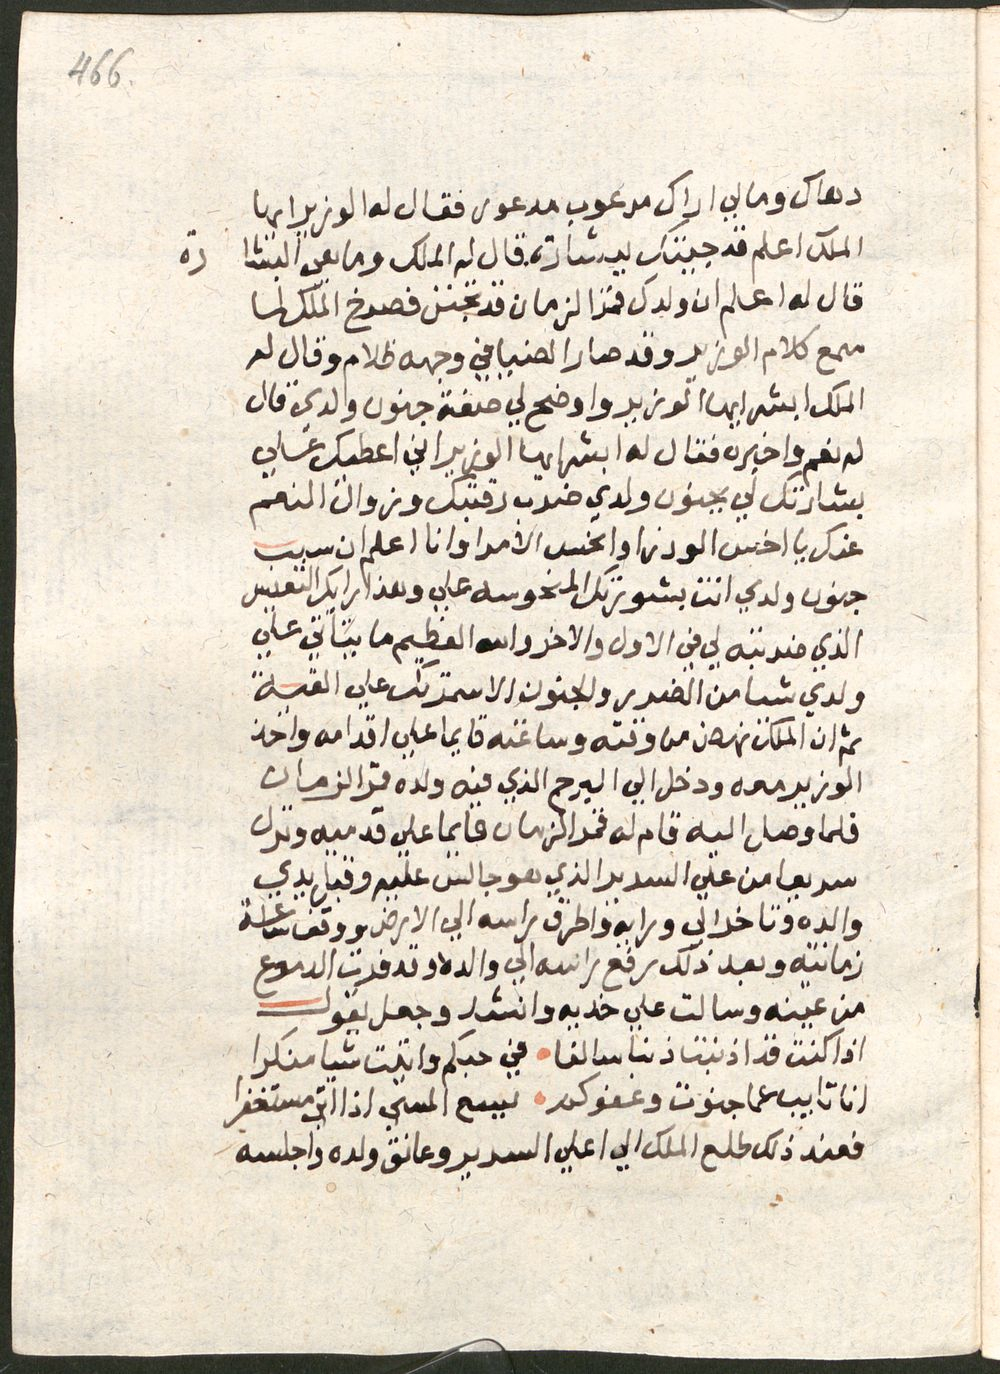 466
دهاك ومالي اراك مرعوب مدعور فقال له الوزير ايها
الملك اعلم قد جيتك ببشارة قال له الملك وما هي البشا رة
قال له اعلم ان ولدك قمر الزمان قد تجنن فصرخ الملك لما
سمع كلام الوزير وقد صار الضيا في وجهه ظلام وقال له
الملك ابشر ايها الوزير واوضح لي صفة جنون ولدي قال
له نعم واخبره فقال له ابشر ايها الوزير اني اعطيك علي
بشارتك لي بجنون ولدي ضرب رقبتك وزوال النعم
عنك يا اخس الوزرا وانحس الامرا وانا اعلم ان سبب
جنون ولدي انت بشورتك المنحوسه علي وهذا رايك التعيس
الذي ضربته لي في الاول والاخر والله العظيم ما يتاتي علي
ولدي شيا من الضرر والجنون الا سمرتك علي القبة
ثم ان الملك نهض من وقته وساعته قايما علي اقدامه واخذ
الوزير معه ودخل الي البرج الذي فيه ولده قمر الزمان
فلما وصل اليه قام له قمر الزمان قايما علي قدميه ونزل
سريعا من علي السرير الذي هو جالس عليه وقبل يدي
والده وتاخر الي ورايه واطرق براسه الي الارض ووقف ساعة
زمانيه وبعد ذلك رفع راسه الي والده وقد فرت الدموع
من عينه وسالت علي خديه وانشد وجعل يقول
اذا كنت قد اذنبت ذنبا سالفا • في حبكم واتيت شيا منكرا
انا تايب عما جنوت وعفوكم • يسع المسي اذا اتي مستغفرا
فعند ذلك طلع الملك الي اعلي السرير وعانق ولده واجلسه